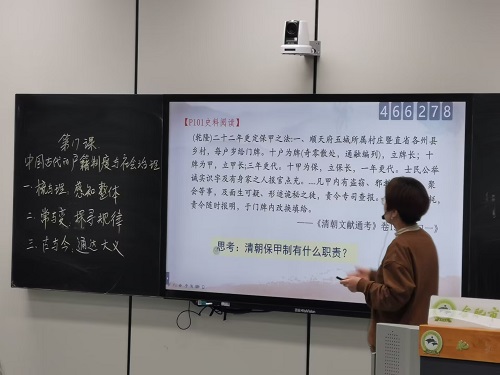 第17课
中国古代的户籍制度与社会治理
一.横与理 感知整体
二.常与变 探寻规律
三.古与今 通达大义
【P101史料阅读】
466278
(乾隆)二十二年更定保甲之法:一、顺天府五城所属村庄暨直省各州县
乡村,每户岁给门牌。十户为牌(奇零散处,通融编列),立牌长;十
牌为甲,立甲长;三年更代。十甲为保,立保长,一年更代。士民公举
诚实识字及有身家之人报官点充。…凡甲内有盗窃、邪教 聚
会等事,及面生可疑、形迹诡秘之徒,责令专司查报。
责令随时报明,于门牌内改换填给。
——《清朝文献通考》卷
思考:清朝保甲制有什么职责?